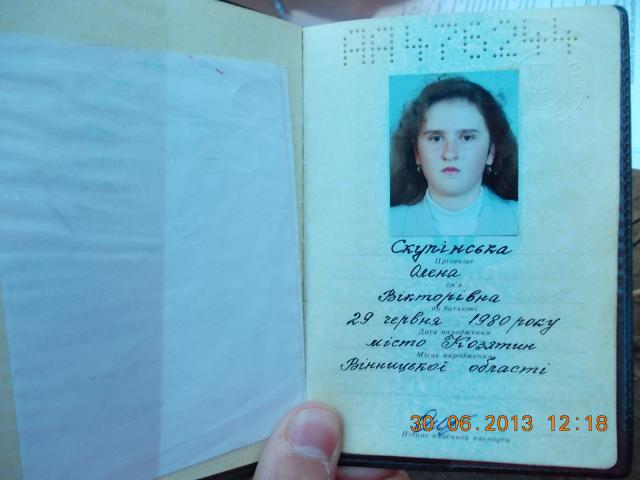 АА475244
Скупінська
Прізвище
Олена
ім'я
Вікторівна
по батькові
29 червня 1980 року
Дата народження
місто Козятин
Місце народження
Вінницької області
30.06.2013 12:18
Підпис власника паспорта